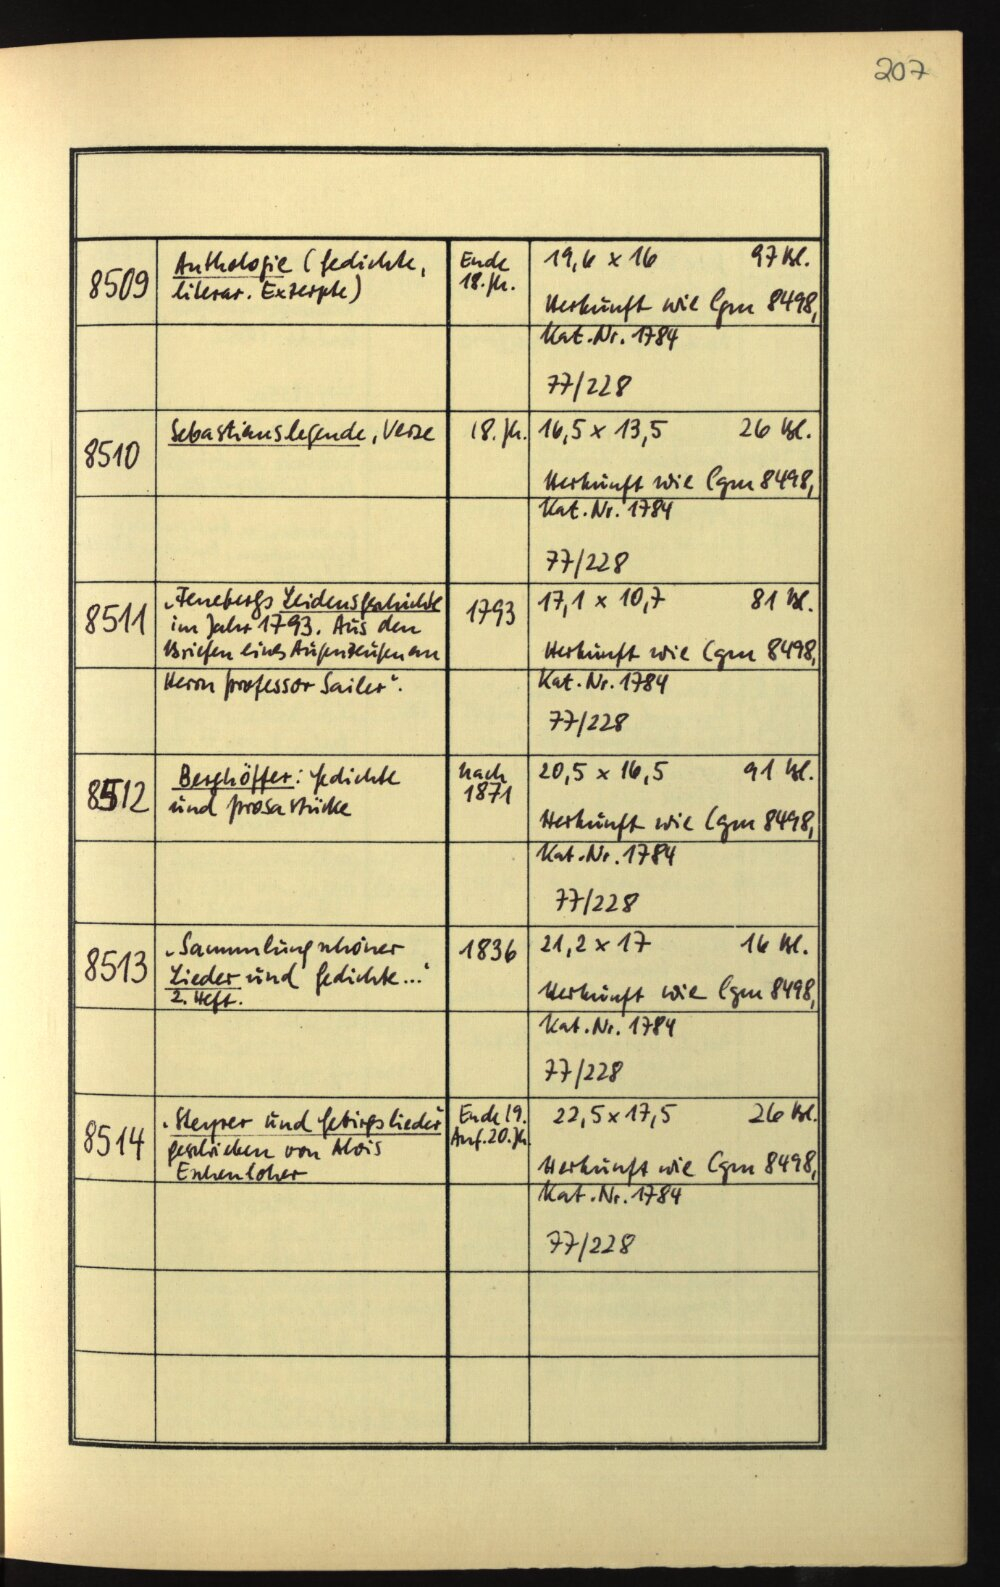 207
8509
Anthologie (Gedichte,
literar. Exzerpte)
Ende
18. Jh.
19,6 x 16 97 Bl.
Herkunft wie Cgm 8498,
Kat.Nr. 1784
77/228
8510
Sebastianslegende, Verse
18. Jh.
16,5 x 13,5 26 Bl.
Herkunft wie Cgm 8498,
Kat.Nr. 1784
77/228
8511
„Fenebergs Leidensgeschichte
im Jahr 1793. Aus den
Briefen eines Augenzeugen an
Herrn Professor Sailer“.
1793
17,1 x 10,7 81 Bl.
Herkunft wie Cgm 8498,
Kat.Nr. 1784
77/228
8512
Berghöffer: Gedichte
und Prosastücke
nach
1871
20,5 x 16,5 91 Bl.
Herkunft wie Cgm 8498,
Kat.Nr. 1784
77/228
8513
„Sammlung schöner
Lieder und Gedichte...“
2. Heft.
1836
21,2 x 17 16 Bl.
Herkunft wie Cgm 8498,
Kat.Nr. 1784
77/228
8514
„Steyrer und Gebirgslieder“
geschrieben von Alois
Eschenloher
Ende 19.
Anf. 20. Jh.
22,5 x 17,5 26 Bl.
Herkunft wie Cgm 8498,
Kat.Nr. 1784
77/228